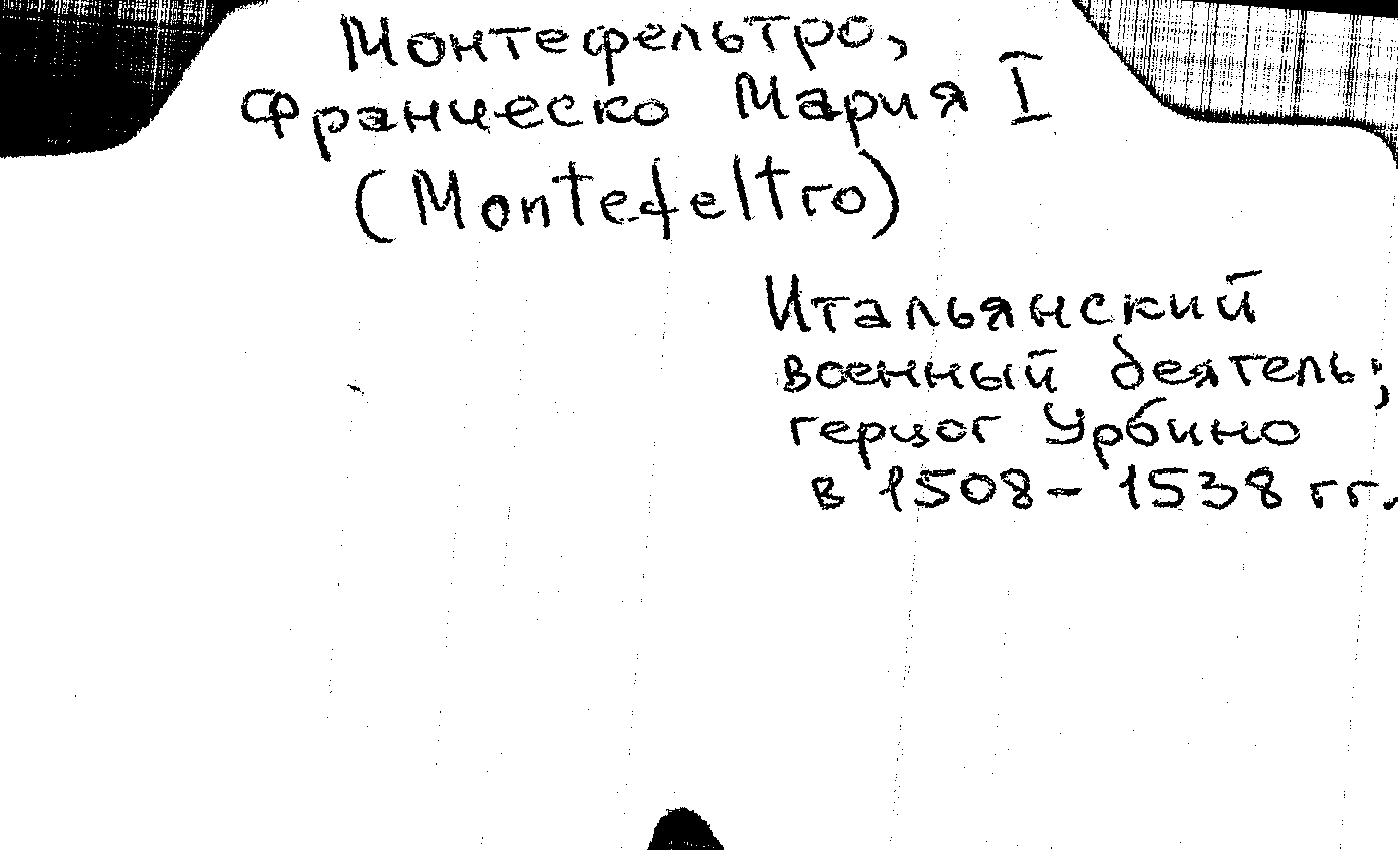 Монтефельтро,
Франческо Мария I
(Montefeltro)
Итальянский
военный деятель;
герцог Урбино
в 1508 - 1538 гг.